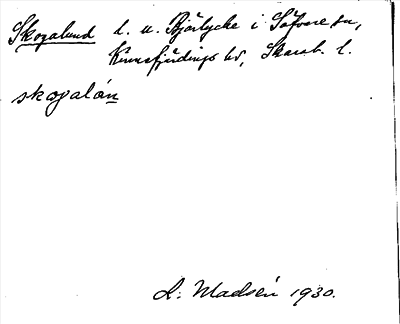 Skogalund l. u. Björlycke i Såtvare sn,
Kinnefjärdings hd, Skarab. l.
skogalån
L: Madsén 1930.